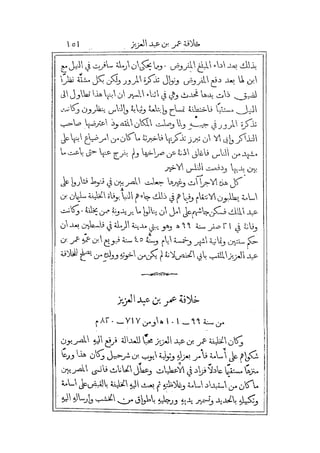 خلافة عمر بن عبد العزيز ١٥١
بذلك بعد اداء المبلغ المفروض . ومما يحكى ان ارملة سافرت في النيل مع
ابن لها بعد دفع المفروض ونوال تذكرة المرور ولكن بكل مشقة نظرًا
لفقرها ذات يدها فحدث وهي في اثناء المسير ان ابنها هذا تطاول الى
النيل مستقيًا فاختطفه تمساح وابتلعه وثيابه والناس ينظرون وكانت
تذكرة المرور في جيبه ولما وصلت المكان المقصود اعترضها صاحب
التذاكر وابى الا ان تبرز تذكرتها فاخبرته بما كان من امر ضياع ابنها على
مشهد من الناس فاغلق اذنه عن صراخها ولم يفرج عنها حتى باعت ما
بين يديها ودفعت الفلس الاخير
كل هذه الاجراآت وغيرها جعلت المصريين في قنوط فثاروا على
اسامة يطلبون الانتقام وفيما هم في ذلك جاءهم النبأ بوفاة الخليفة سليمان بن
عبد الملك فسكن جأشهم على امل ان ينالوا ما يريدونه ممن يخلفه . وكانت
وفاته في ٢١ صفر سنة ٩٩ هـ وهو يبني مدينة الرملة في فلسطين بعد ان
حكم سنتين وثمانية اشهر وخمسة ايام وسنه ٤٥ سنة فبويع ابن عمه عمر بن
عبد العزيز الملقب بابي الحفص لانه لم يكن من اخوته وولده من يصلح للخلافة
خلافة عمر بن عبد العزيز
من سنة ٩٩ — ١٠١ هـ او من ٧١٧ — ٨٢٠ م
وكان الخليفة عمر بن عبد العزيز محبًا للعدالة فرفع اليه المصريون
شكواهم على أسامة فأمر بعزله وتولية ايوب بن شرحبيل وكان هذا ورعًا
متنزهًا مستقيمًا عادلًا فزاد في الاعطيات وعطل الحانات فانسى المصريين
ما كان من استبداد اسامة وغلاظته ثم بعث اليه الخليفة بالقبض على اسامة
وتكبيله بالحديد وتسمير يديه ورجليه باطواق من الخشب وارساله اليه